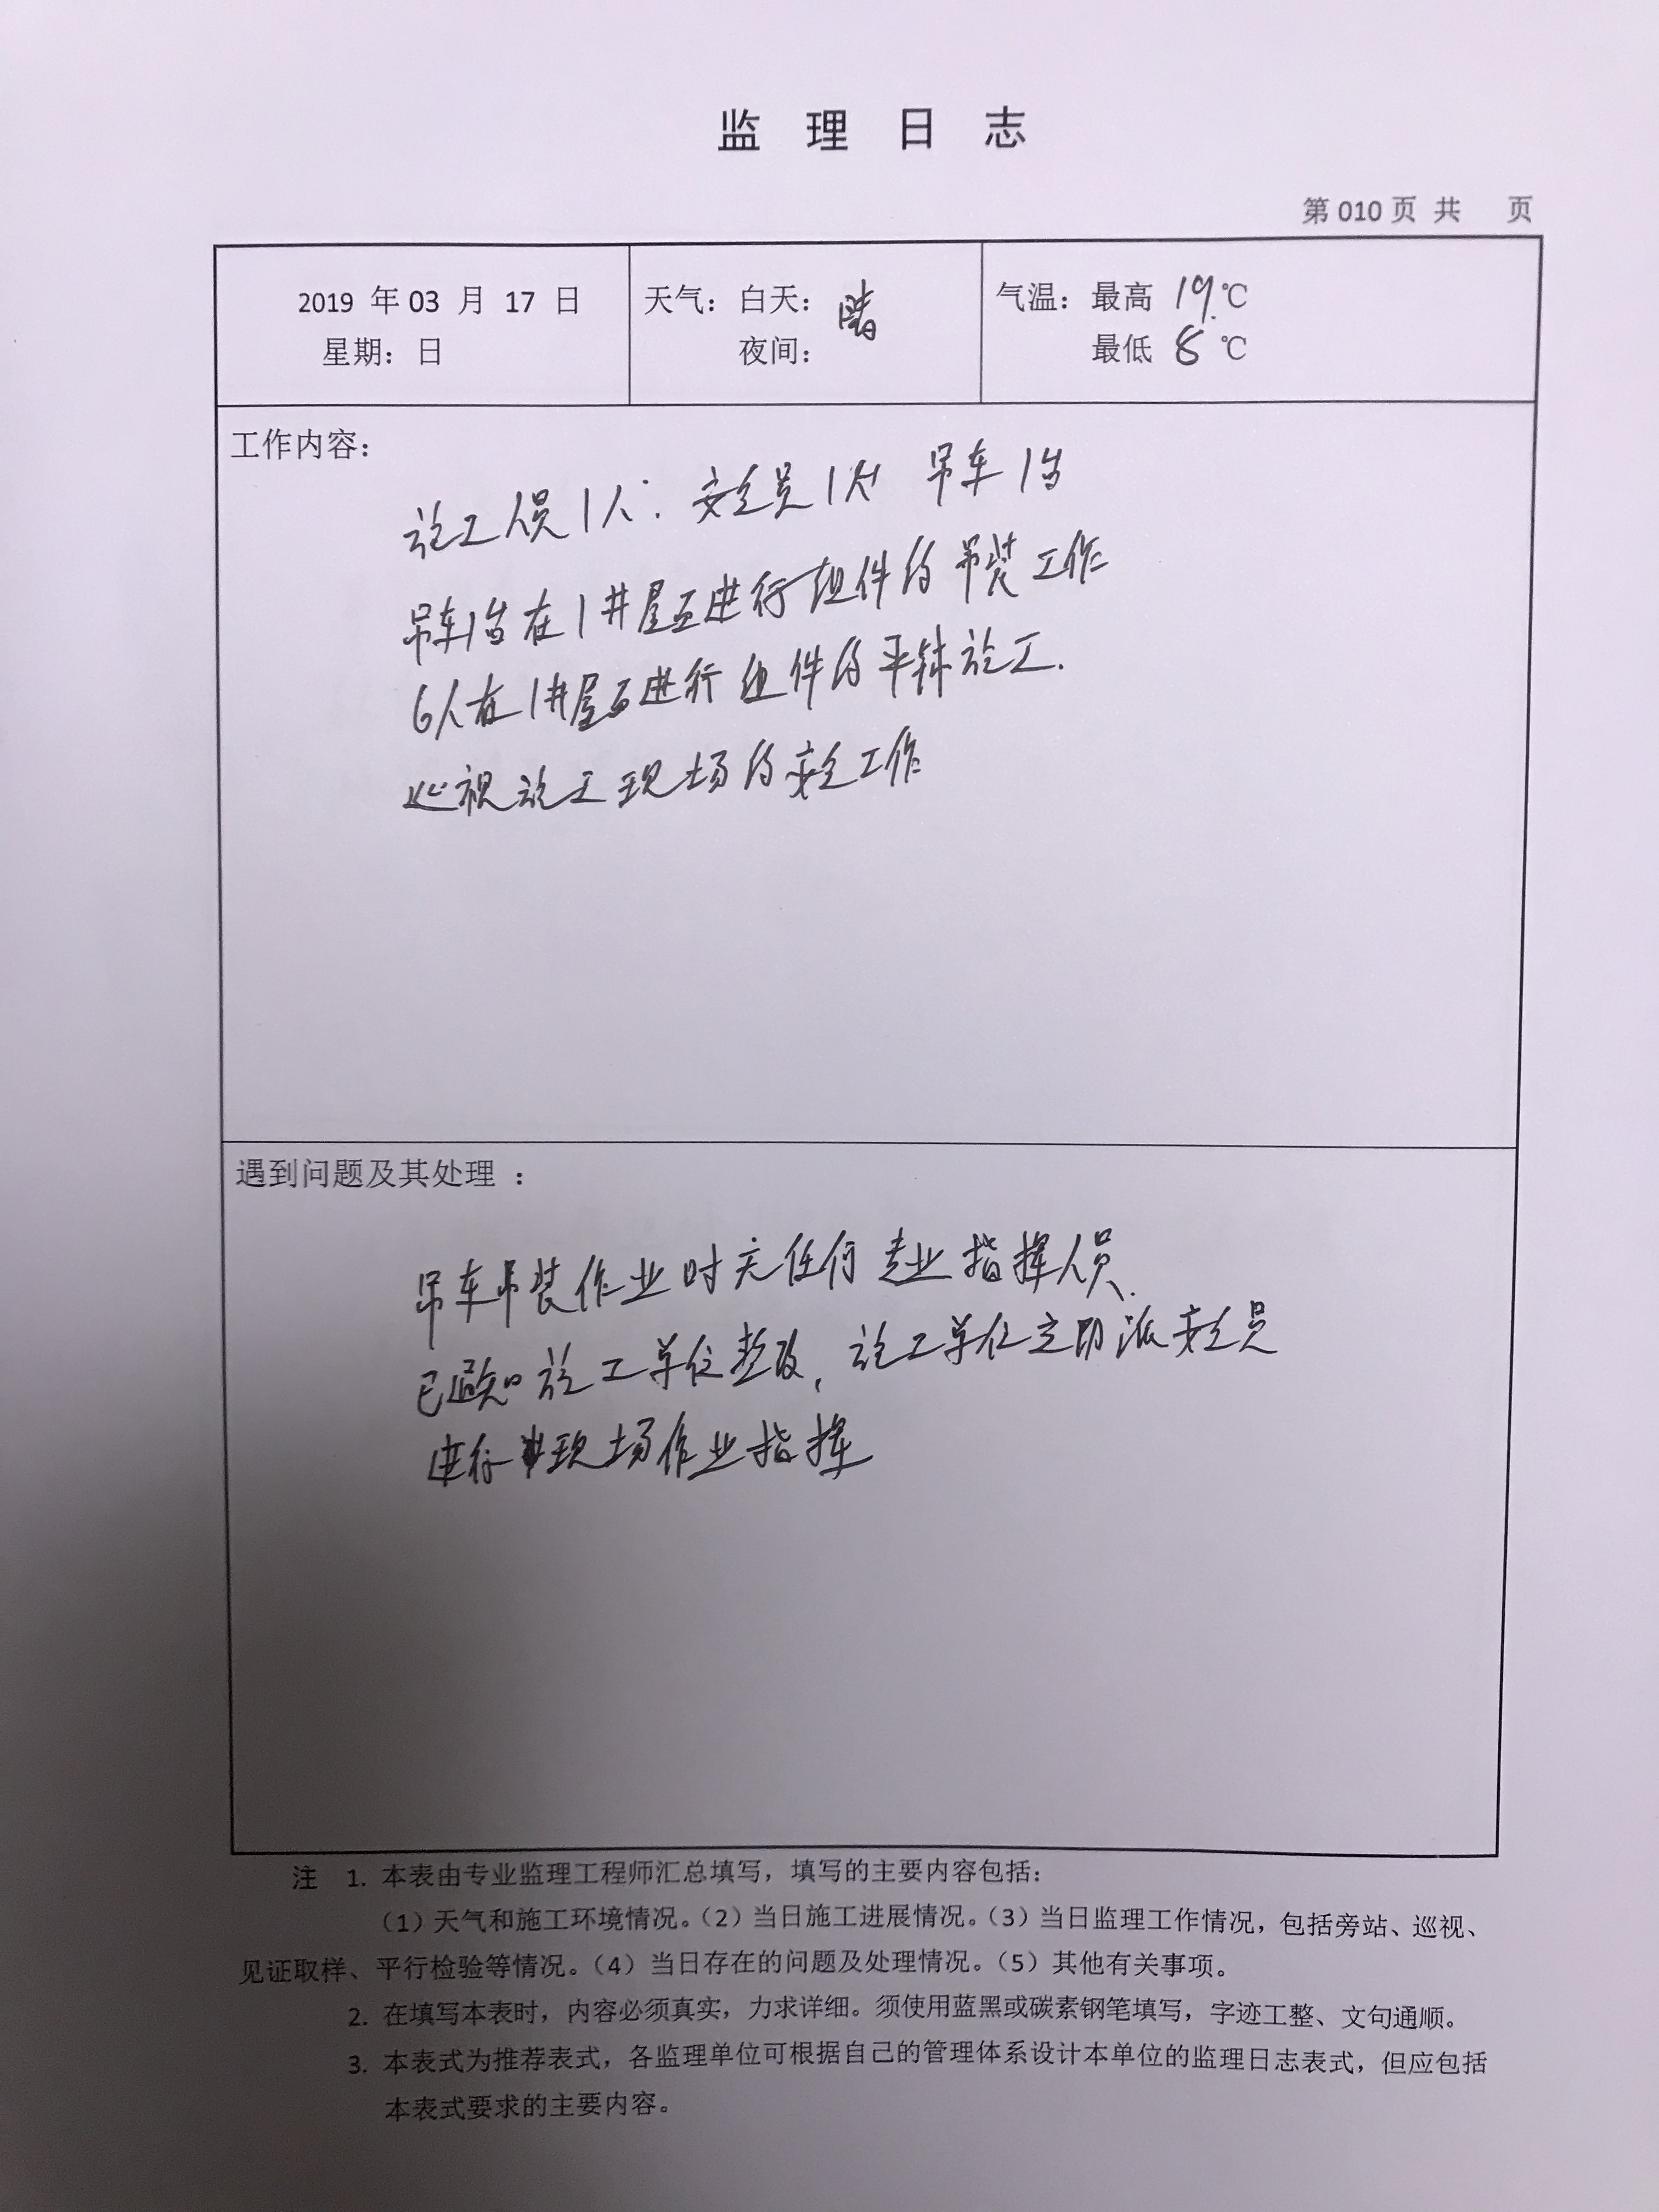 监 理 日 志
第 010 页 共 页
2019 年 03 月 17 日
星期：日
天气：白天：晴
夜间：
气温：最高 19 ℃
最低 8 ℃
工作内容：
施工员1人：安全员1人 吊车1台
吊车1台在1井屋面进行组件的吊装工作
6人在1井屋面进行组件的平铺施工.
巡视施工现场的安全工作
遇到问题及其处理 ：
吊车吊装作业时无任何专业指挥人员.
已通知施工单位整改，施工单位立即派安全员
进行现场作业指挥
注 1. 本表由专业监理工程师汇总填写，填写的主要内容包括：
（1）天气和施工环境情况。（2）当日施工进展情况。（3）当日监理工作情况，包括旁站、巡视、
见证取样、平行检验等情况。（4）当日存在的问题及处理情况。（5）其他有关事项。
2. 在填写本表时，内容必须真实，力求详细。须使用蓝黑或碳素钢笔填写，字迹工整、文句通顺。
3. 本表式为推荐表式，各监理单位可根据自己的管理体系设计本单位的监理日志表式，但应包括
本表式要求的主要内容。